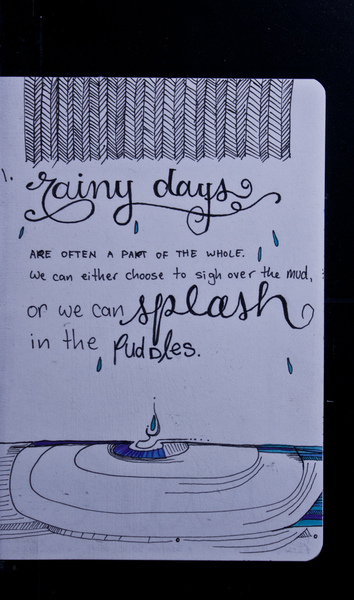 rainy days
ARE OFTEN A PART OF THE WHOLE.
We can either choose to sigh over the mud,
or we can splash
in the puddles.